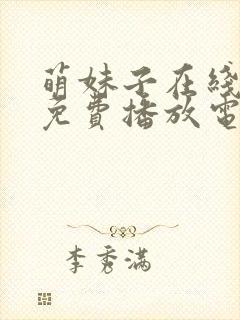 萌妹子在线
免费播放电
李秀满